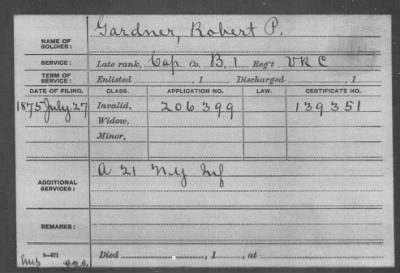 Gardner, Robert P.
NAME OF SOLDIER:
SERVICE: Late rank, Cap Co. B. 1 Reg't V R C
TERM OF SERVICE: Enlisted , 1 Discharged , 1
DATE OF FILING. CLASS. APPLICATION NO. LAW. CERTIFICATE NO.
1875 July 27 Invalid, 206399 139351
Widow,
Minor,
ADDITIONAL SERVICES: A 21 N.Y. Inf
REMARKS:
Died , 1 , at